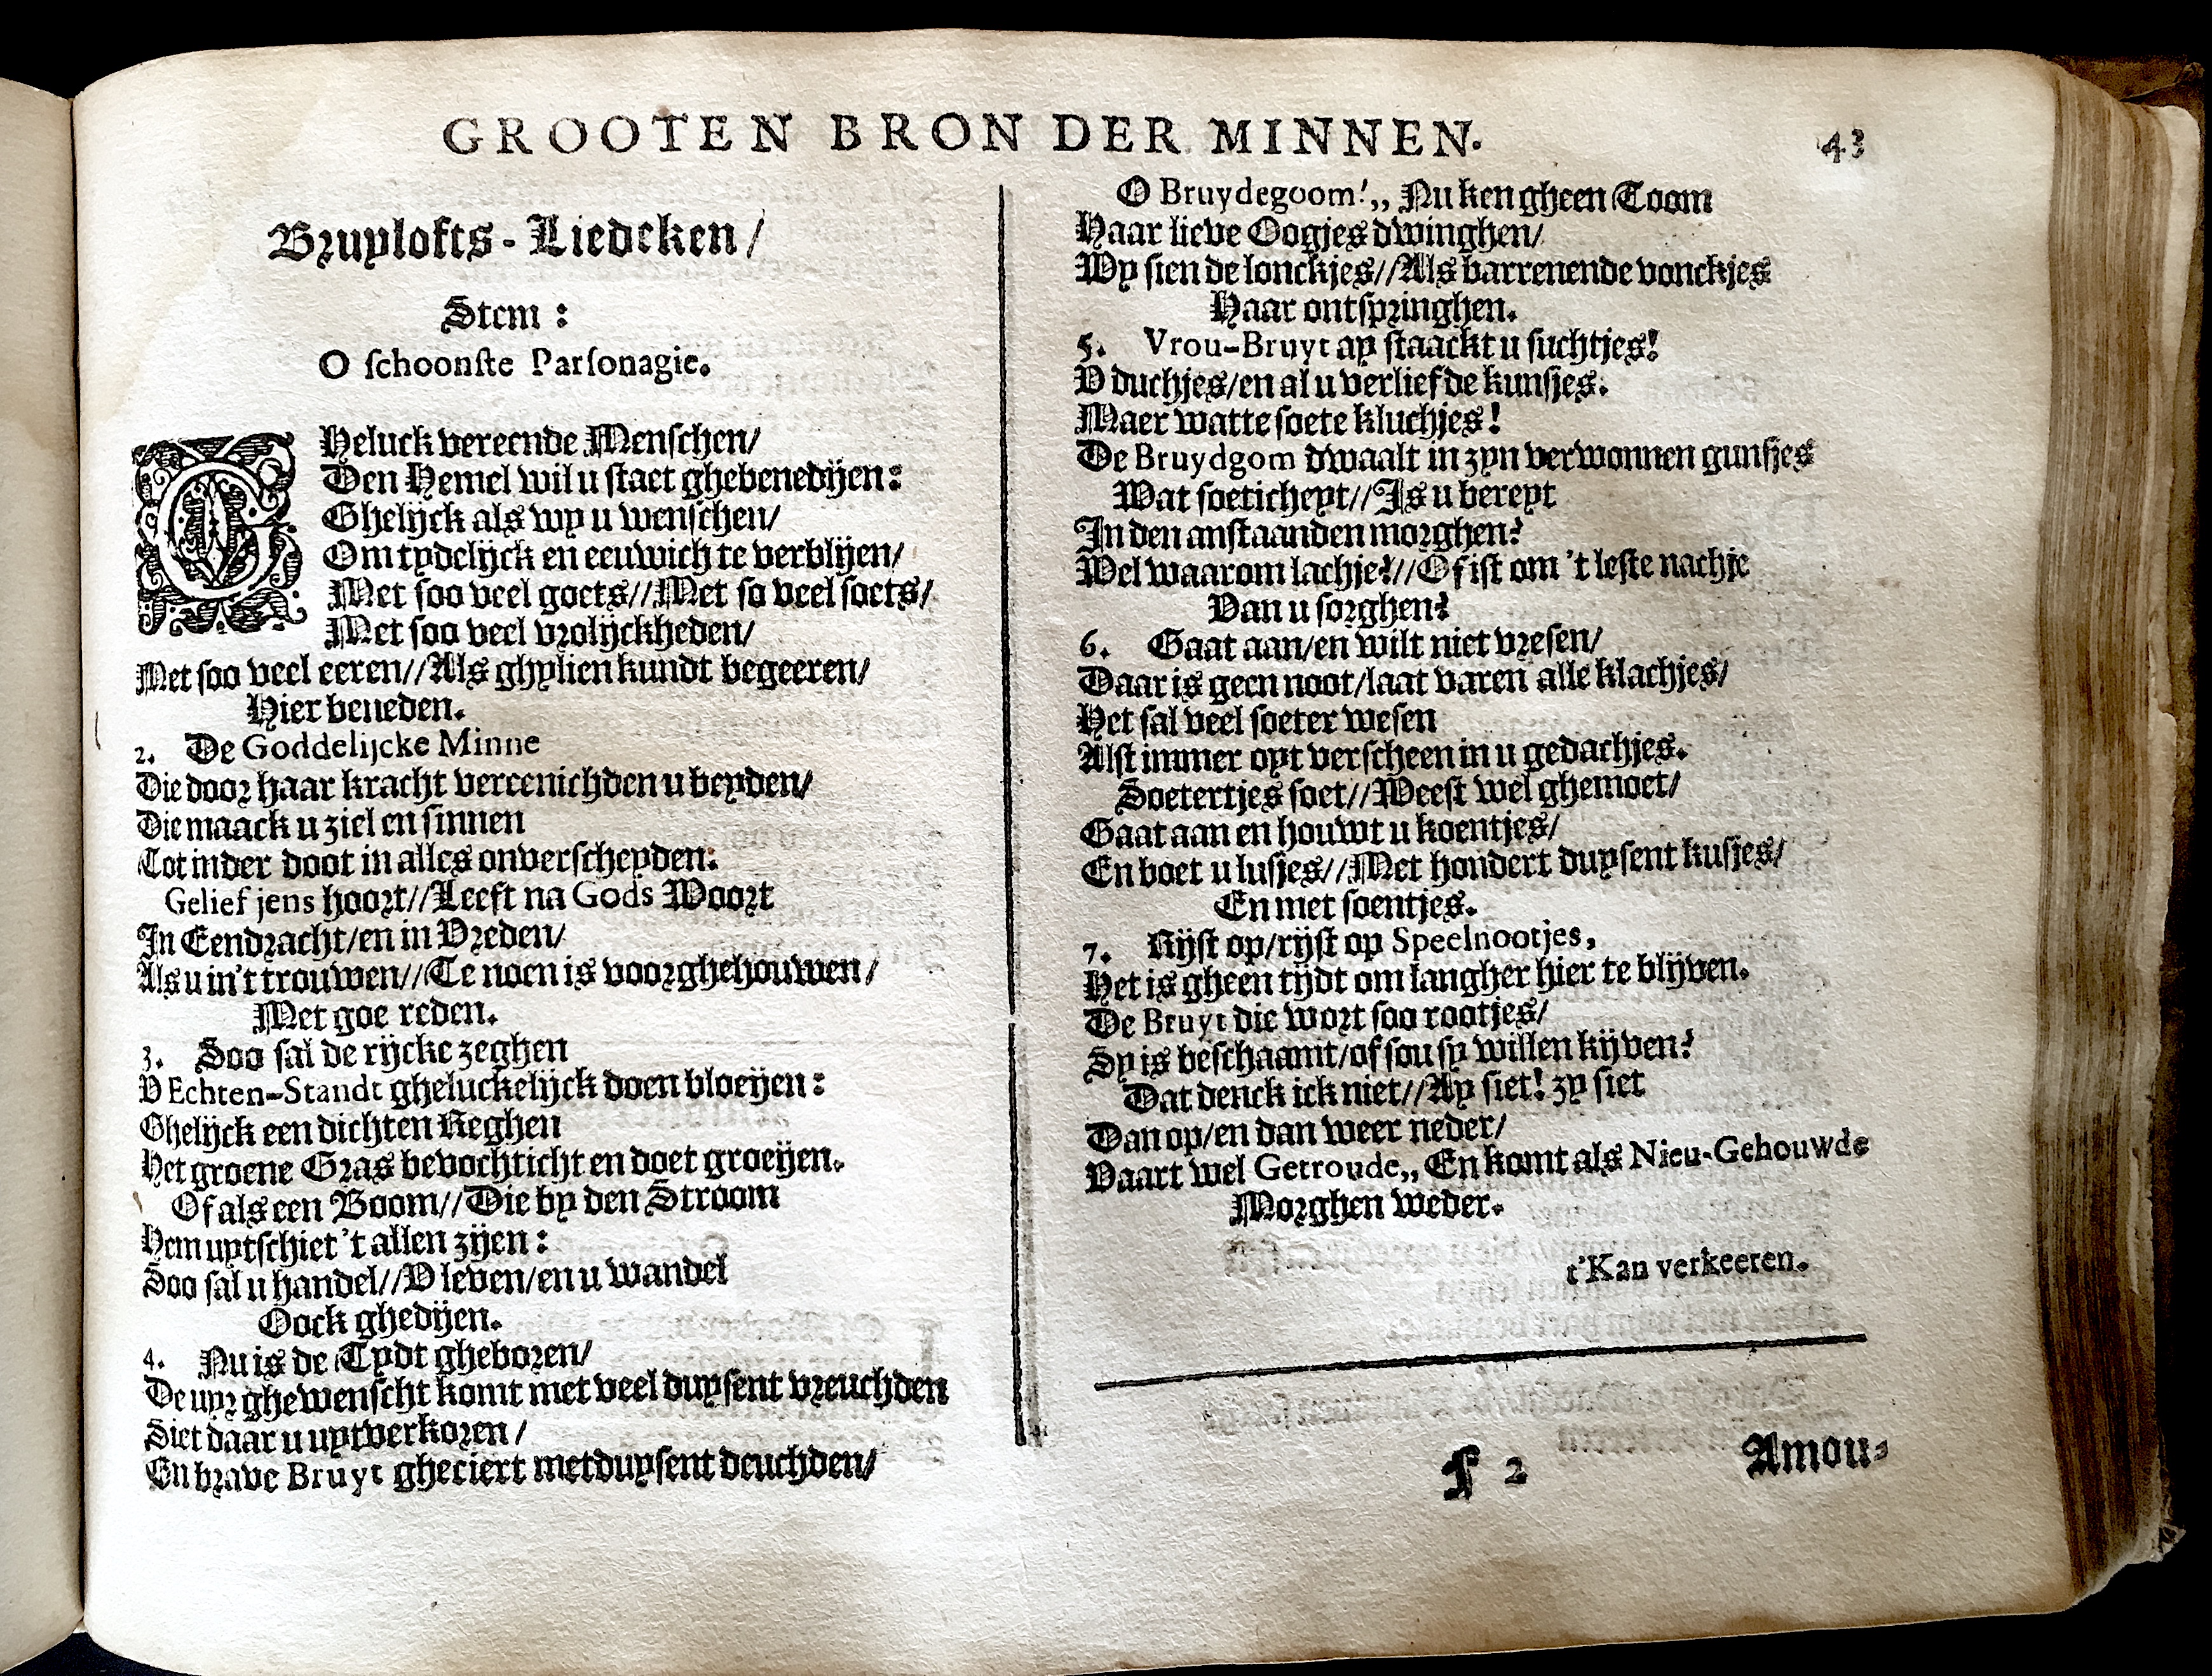 GROOTEN BRON DER MINNEN. 43
Bruylofts-Liedeken/
Stem:
O schoonste Parsonagie.
GHeluck vereende Menschen/
Den Hemel wil u staet ghebenedijen:
Ghelijck als wy u wenschen/
Om tydelijck en eeuwich te verblijen/
Met soo veel goets//Met so veel soets/
Met soo veel vrolijckheden/
Met soo veel eeren//Als ghylien kundt begeeren/
Hier beneden.
2. De Goddelijcke Minne
Die door haar kracht vereenichden u beyden/
Die maack u ziel en sinnen
Tot inder doot in alles onverscheyden:
Geliefjens hoort//Leeft na Gods Woort
In Eendracht/en in Vreden/
Als u in't trouwen//Te noen is voorghehouwen/
Met goe reden.
3. Soo sal de rijcke zeghen
V Echten-Standt gheluckelijck doen bloeijen:
Ghelijck een dichten Reghen
Het groene Gras bevochticht en doet groeijen.
Of als een Boom//Die by den Stroom
Hem uytschiet 't allen zijen:
Soo sal u handel//V leven/en u wandel
Oock ghedijen.
4. Nu is de Tydt gheboren/
De uyr ghewenscht komt met veel duysent vreuchden
Siet daar u uytverkoren/
En brave Bruyt gheciert met duysent deuchden/
O Bruydegoom!,, Nu ken gheen Toom
Haar lieve Oogjes dwinghen/
Wy sien de lonckjes//Als barrenende vonckjes
Haar ontspringhen.
5. Vrou-Bruyt ay staackt u suchtjes!
V duchjes/en al u verliefde kunsjes.
Maer watte soete kluchjes!
De Bruydgom dwaalt in zyn verwonnen gunsjes
Wat soeticheyt//Is u bereyt
In den anstaanden morghen?
Wel waarom lachje?//Of ist om 't leste nachje
Van u sorghen?
6. Gaat aan/en wilt niet vresen/
Daar is geen noot/laat varen alle klachjes/
Het sal veel soeter wesen
Alst immer oyt verscheen in u gedachjes.
Soetertjes soet//Weest wel ghemoet/
Gaat aan en houwt u koentjes/
En boet u lusjes//Met hondert duysent kusjes/
En met soentjes.
7. Rijst op/rijst op Speelnootjes,
Het is gheen tijdt om langher hier te blijven.
De Bruyt die wort soo rootjes/
Sy is beschaamt/of sou sy willen kijven?
Dat denck ick niet//Ay siet! zy siet
Dan op/en dan weer neder/
Vaart wel Getroude,, En komt als Nieu-Gehouwde
Morghen weder.
t'Kan verkeeren.
f 2 Amou-